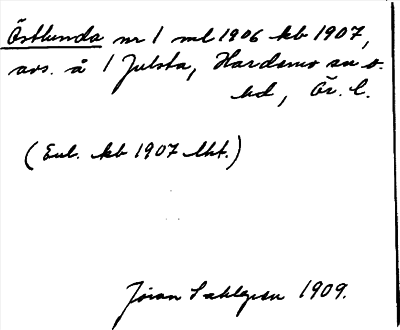 Östlunda nr 1 ml 1906 kb 1907,
avs. å 1 Julsta, Hardemo sn o.
hd, Ör. l.
(Enl. kb 1907 lht.)
Jöran Sahlgren 1909.